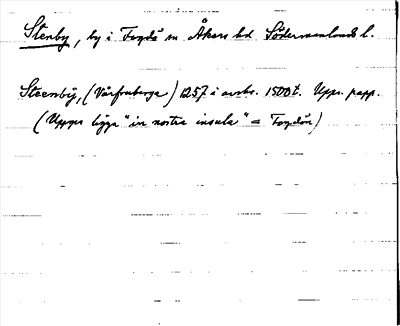 Stenby, by i Fogdö sn Åkers hd Södermanlands l.
Steenby, (Vårfruberga) 1257 i avskr. 1500t. Upps. papp.
(Uppges ligga "in nostra insula" = Fogdön)